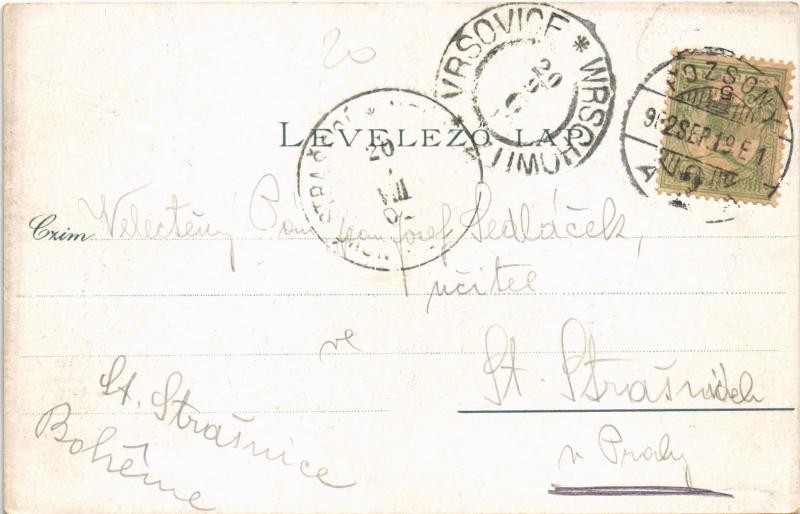 20
VRSOVICE * WRSCHO
20
POZSONY
902 SEP 19 E 1
LEVELEZŐ LAP.
STRAŠ
20
VIII
Czim Velectěný Pan pan Josef Sedláček,
učitel
ve St. Strašnicích
u Prahy
St. Strašnice
Bohême